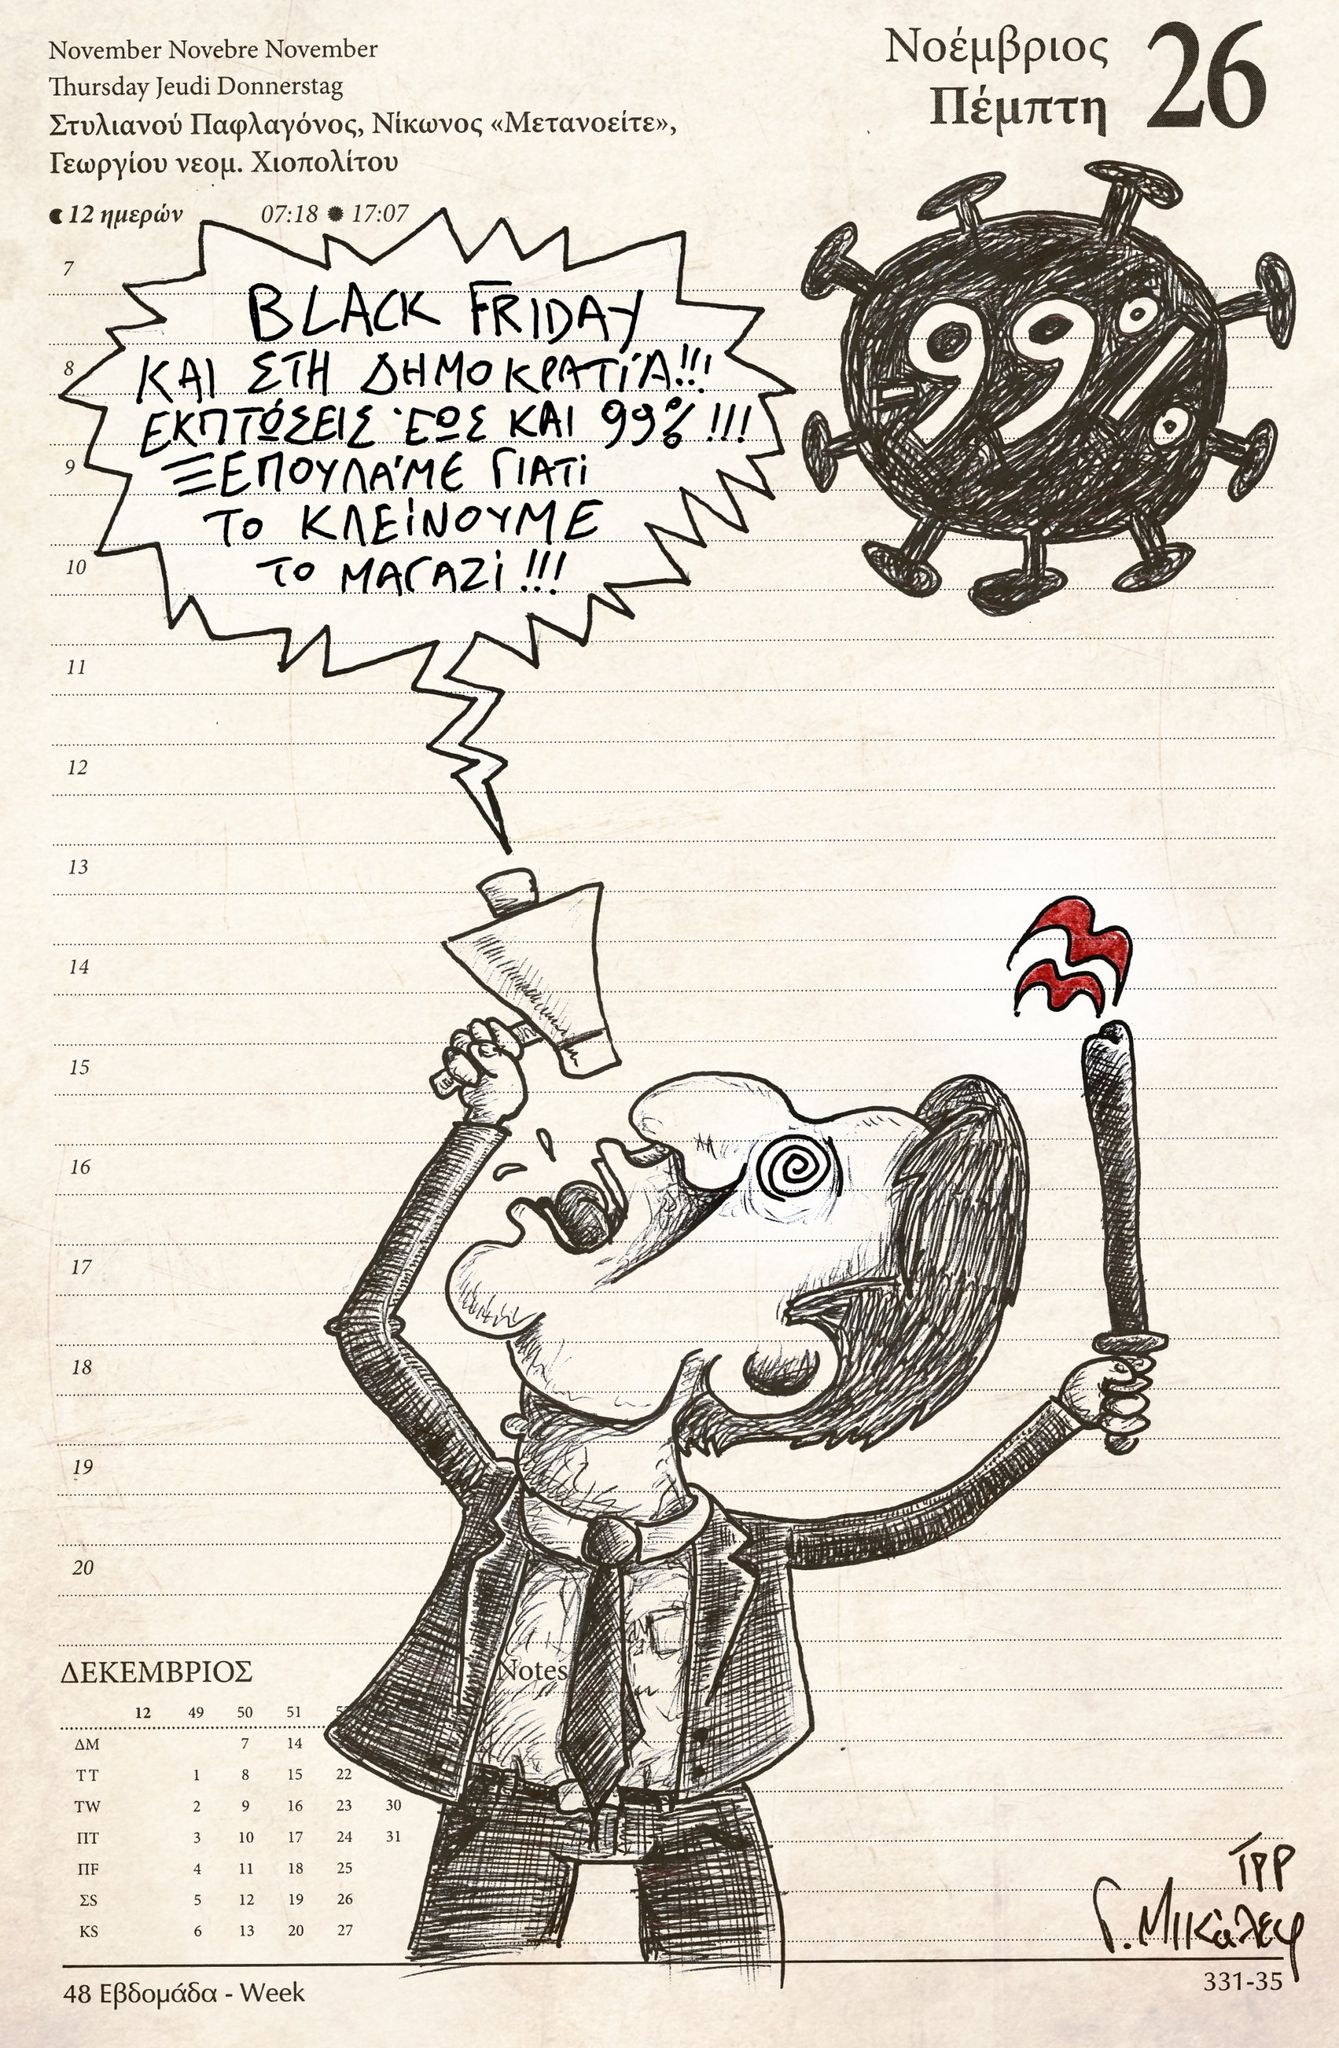 November Novebre November
Thursday Jeudi Donnerstag
Στυλιανού Παφλαγόνος, Νίκωνος «Μετανοείτε»,
Γεωργίου νεομ. Χιοπολίτου
12 ημερών 07:18 17:07
Νοέμβριος
Πέμπτη
26
BLACK FRIDAY
ΚΑΙ ΣΤΗ ΔΗΜΟΚΡΑΤΊΑ!!!
ΕΚΠΤΏΣΕΙΣ ΈΩΣ ΚΑΙ 99%!!!
ΞΕΠΟΥΛΆΜΕ ΓΙΑΤΊ
ΤΟ ΚΛΕΊΝΟΥΜΕ
ΤΟ ΜΑΓΑΖΊ!!!
-99%
7
8
9
10
11
12
13
14
15
16
17
18
19
20
ΔΕΚΕΜΒΡΙΟΣ
Notes
12 49 50 51
ΔM 7 14
ΤT 1 8 15 22
ΤW 2 9 16 23 30
ΠT 3 10 17 24 31
ΠF 4 11 18 25
ΣS 5 12 19 26
KS 6 13 20 27
Γ. Μικάλεφ
48 Εβδομάδα - Week
331-35